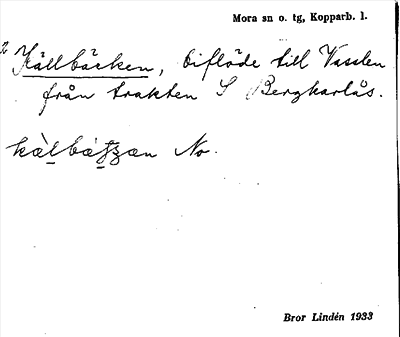 Mora sn o. tg, Kopparb. l.
2 Källbäcken, biflöde till Vasslen
från trakten S Bergkarlås.
No.
Bror Lindén 1933